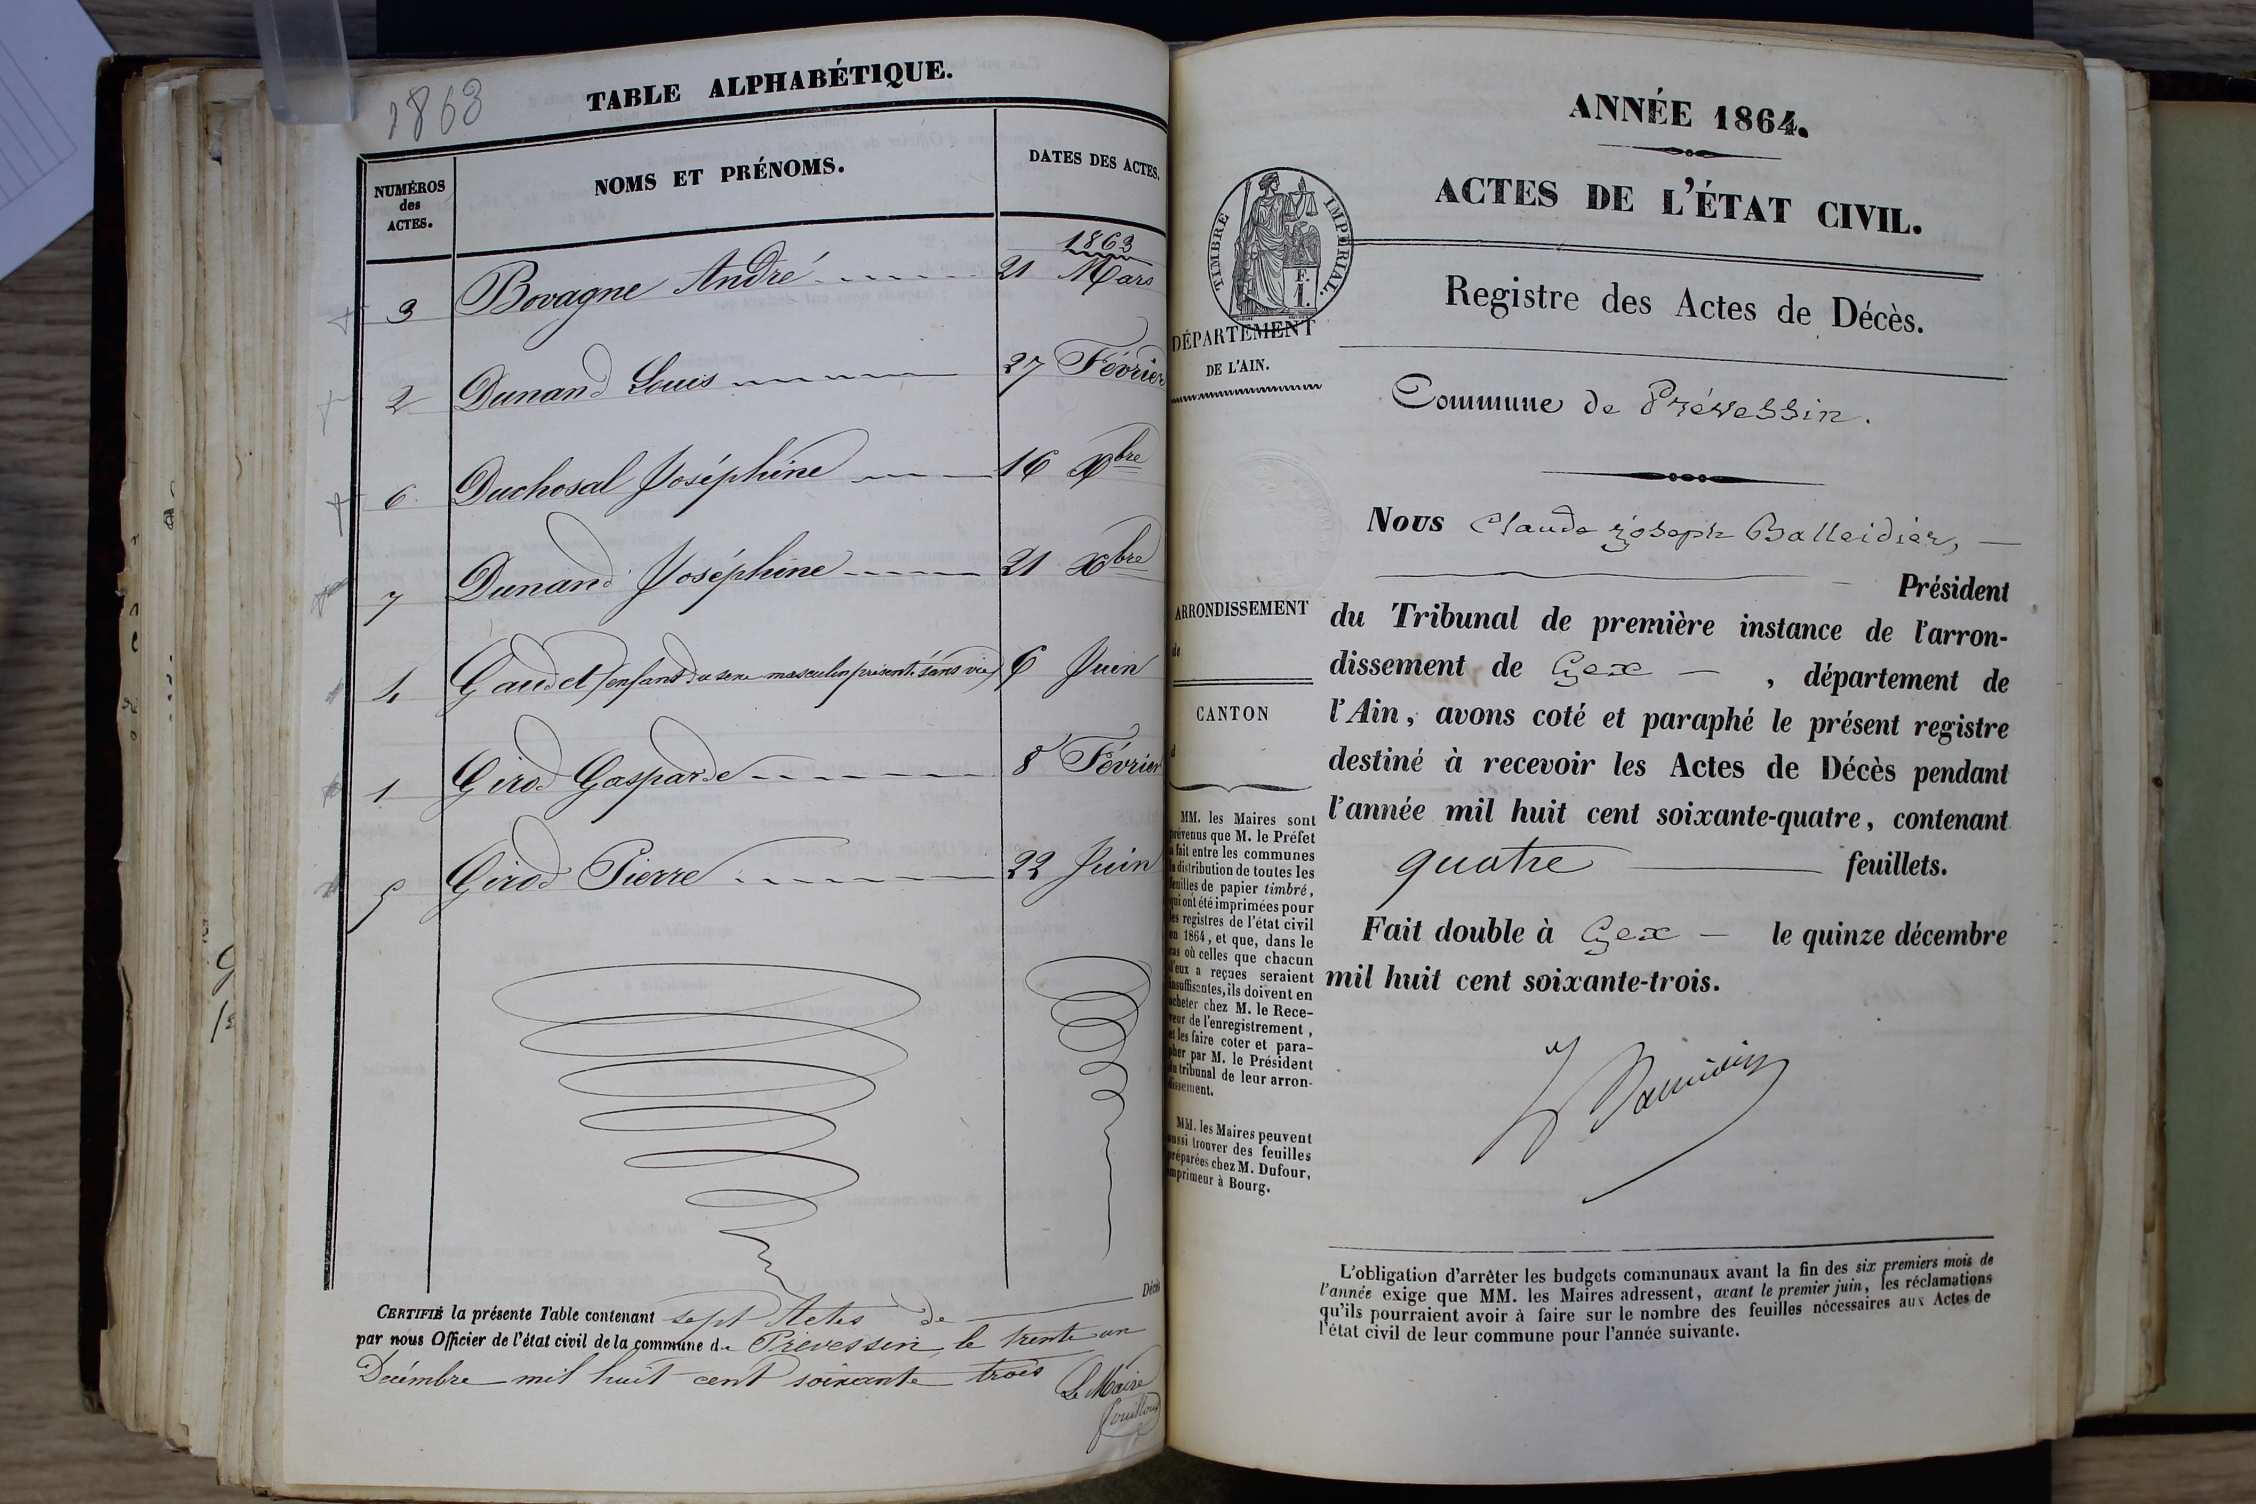 1863
TABLE ALPHABÉTIQUE.
NUMÉROS
des
ACTES.
NOMS ET PRÉNOMS.
DATES DES ACTES.
1863
3 Bovagne André 21 Mars
2 Dunand Louis 27 Février
6 Duchosal Joséphine 16 Xbre
7 Dunand Joséphine 21 Xbre
4 Gaudet (enfant du sexe masculin présenté sans vie) 6 Juin
1 Girod Gasparde 8 Février
5 Girod Pierre 22 Juin
Décès
CERTIFIÉ la présente Table contenant sept Actes de
par nous Officier de l'état civil de la commune de Prévessin, le trente un
Décembre mil huit cent soixante trois
Le Maire
ANNÉE 1864.
ACTES DE L'ÉTAT CIVIL.
TIMBRE IMPÉRIAL.
F.
1.
DÉPARTEMENT
DE L'AIN.
Registre des Actes de Décès.
Commune de Prévessin.
Nous Claude Joseph Balleidier,
Président
du Tribunal de première instance de l'arron-
dissement de Gex, département de
l'Ain, avons coté et paraphé le présent registre
destiné à recevoir les Actes de Décès pendant
l'année mil huit cent soixante-quatre, contenant
quatre feuillets.
Fait double à Gex le quinze décembre
mil huit cent soixante-trois.
ARRONDISSEMENT
de
CANTON
d
MM. les Maires sont
prévenus que M. le Préfet
a fait entre les communes
la distribution de toutes les
feuilles de papier timbré,
qui ont été imprimées pour
les registres de l'état civil
en 1864, et que, dans le
cas où celles que chacun
d'eux a reçues seraient
insuffisantes, ils doivent en
acheter chez M. le Rece-
veur de l'enregistrement,
et les faire coter et para-
pher par M. le Président
du tribunal de leur arron-
dissement.
MM. les Maires peuvent
aussi trouver des feuilles
préparées chez M. Dufour,
imprimeur à Bourg.
L'obligation d'arrêter les budgets communaux avant la fin des six premiers mois de
l'année exige que MM. les Maires adressent, avant le premier juin, les réclamations
qu'ils pourraient avoir à faire sur le nombre des feuilles nécessaires aux Actes de
l'état civil de leur commune pour l'année suivante.